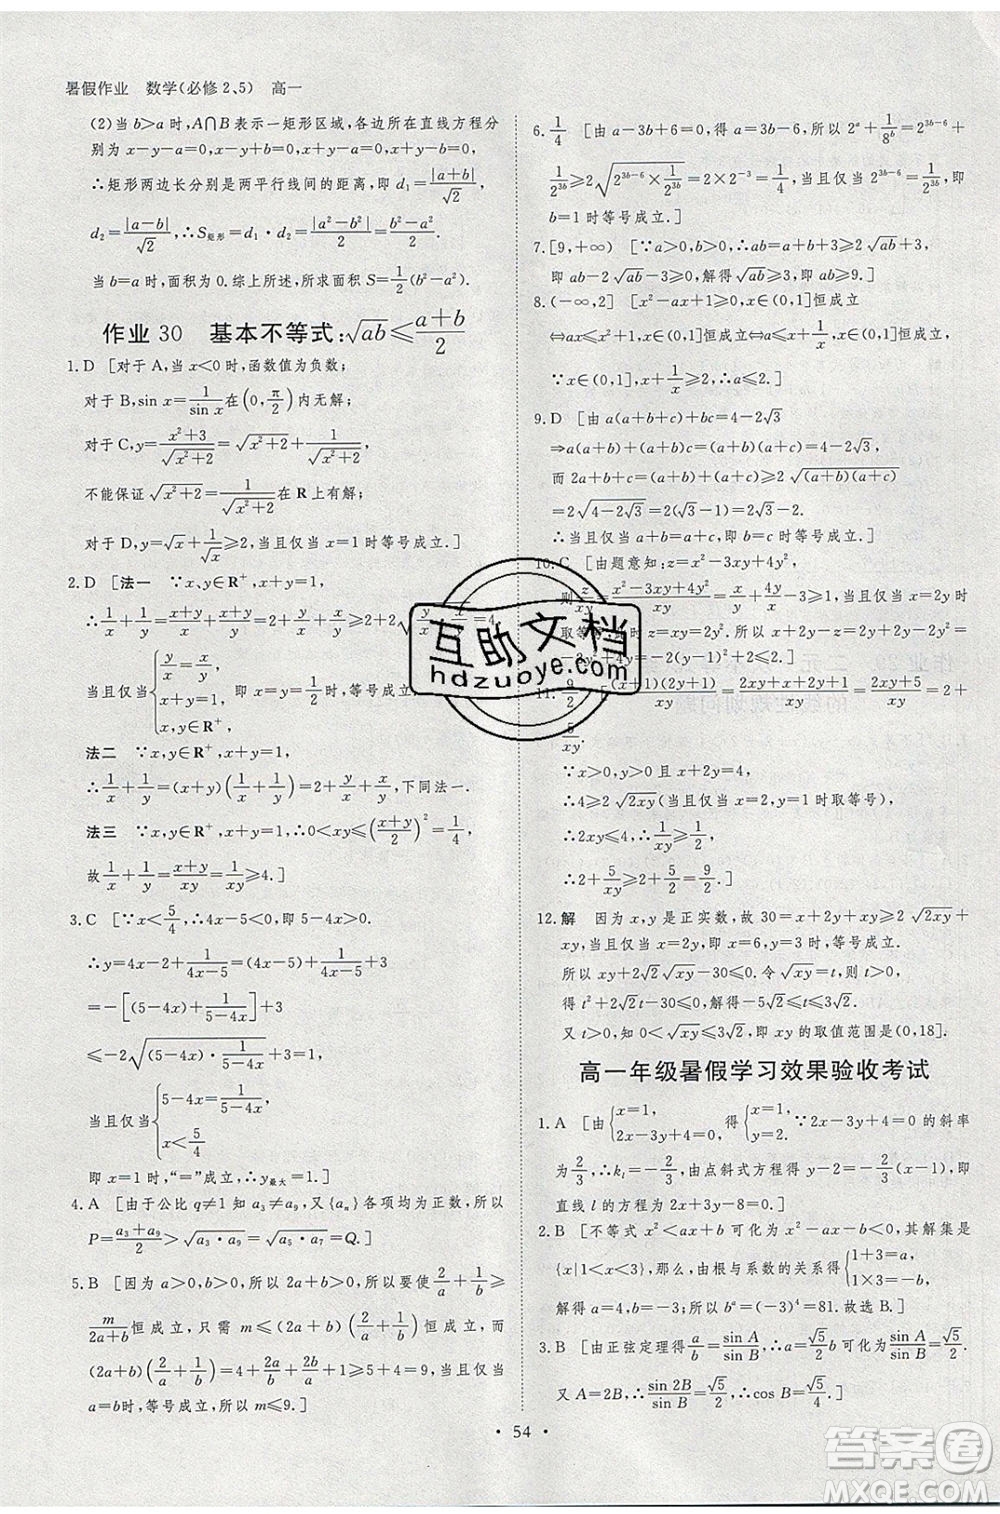 暑假作业 数学(必修2、5) 高一
(2)当 b>a 时,A∩B 表示一矩形区域,各边所在直线方程分
别为 x-y-a=0,x-y+a=0,x+y-b=0,x+y+b=0,
∴矩形两边长分别是两平行线间的距离,即 d₁=|a+b|/√2,
d₂=|a-b|/√2,∴S矩形=d₁·d₂=|a²-b²|/2=(b²-a²)/2.
当 a=b 时,面积为 0.综上所述,面积 S=1/2(b²-a²).
作业 30 基本不等式:√ab≤(a+b)/2
1.D [对于 A,当 x<0 时,函数值为负数;
对于 B,sin x=1/sin x 在(0,π/2)内无解;
对于 C,y=(x²+3)/√(x²+2)=√(x²+2)+1/√(x²+2),
不能保证√(x²+2)=1/√(x²+2)在 R 上有解;
对于 D,y=√x+1/√x≥2,当且仅当 x=1 时,等号成立.]
2.D [法一 ∵x,y∈R⁺,x+y=1,
∴1/x+1/y=(x+y)/x+(x+y)/y=1+y/x+x/y+1≥2+2√(y/x·x/y)=4,
当且仅当{y/x=x/y, x+y=1, x,y∈R⁺,即 x=y=1/2时,等号成立.
法二 ∵x,y∈R⁺,x+y=1,
∴1/x+1/y=(x+y)(1/x+1/y)=2+y/x+x/y,下同法一.
法三 ∵x,y∈R⁺,x+y=1,∴0<xy≤((x+y)/2)²=1/4,
故1/x+1/y=(x+y)/xy=1/xy≥4.]
3.C [∵x<5/4,∴4x-5<0,即 5-4x>0,
∴y=4x-2+1/(4x-5)=4x-5+1/(4x-5)+3
=-[(5-4x)+1/(5-4x)]+3
≤-2√((5-4x)·1/(5-4x))+3=1,
当且仅当{5-4x=1/(5-4x), x<5/4
即 x=1 时,“=”成立,y最大=1.]
4.A [由于公比 q≠1 知 a₃≠a₉,又{aₙ}各项均为正数,所以
P=(a₃+a₉)/2>√(a₃·a₉)=√(a₅·a₇)=Q.]
5.B [因为 a>0,b>0,所以 2a+b>0,所以要使2/a+1/b≥
m/(2a+b)恒成立,只需 m≤(2a+b)(2/a+1/b)恒成立,而
(2a+b)(2/a+1/b)=4+2a/b+2b/a+1≥5+4=9,当且仅当
a=b 时,等号成立,所以 m≤9.]
6.1/4 [由 a-3b+6=0,得 a=3b-6,所以 2ᵃ+1/8ᵇ=2³ᵇ⁻⁶+
1/2³ᵇ≥2√(2³ᵇ⁻⁶×1/2³ᵇ)=2×2⁻³=1/4,当且仅当 2³ᵇ⁻⁶=1/2³ᵇ,即
b=1 时等号成立.]
7.[9,+∞) [∵a>0,b>0,∴ab=a+b+3≥2√ab+3,
即 ab-2√ab-3≥0,解得√ab≥3,即 ab≥9.]
8.(-∞,2] [x²-ax+1≥0,x∈(0,1]恒成立
⇔ax≤x²+1,x∈(0,1]恒成立⇔a≤x+1/x,x∈(0,1]恒
成立.
∵x∈(0,1],x+1/x≥2,∴a≤2.]
9.D [由 a(a+b+c)+bc=4-2√3
⇒a(a+b)+(a+b)c=(a+b)(a+c)=4-2√3,
而 2a+b+c=(a+b)+(a+c)≥2√((a+b)(a+c))
=2√(4-2√3)=2√3-2.
当且仅当 a+b=a+c,即 b=c 时等号成立.]
10.C [由题意知:z=x²-3xy+4y²,
则z/xy=(x²-3xy+4y²)/xy=x/y+4y/x-3≥1,当且仅当 x=2y 时
取等号,此时 z=xy=2y².
11.9/2
5/xy.
∵x>0,y>0,x+2y=4,
∴4≥2√(2xy)(当且仅当 x=2y 时取等号成立),
∴2xy≤4,1/xy≥1/2,
∴2+5/xy≥9/2.]
12.解 因为 x,y 是正实数,故 30=x+2y+xy≥2√(2xy)+
xy,当且仅当 x=2y,即 x=6,y=3 时,等号成立.
所以 xy+2√2·√xy-30≤0.令√xy=t,
得 t²+2√2t-30≤0,解得-5√2≤t≤3√2.
又 t>0,知 0<√xy≤3√2,即 xy 的取值范围是(0,18].
高一年级暑假学习效果验收考试
1.A [由{x=1, 2x-3y+4=0,得{x=1, y=2.∵2x-3y+4=0 的斜率
为2/3,∴k_l=-2/3,由点斜式方程得 y-2=-2/3(x-1),即
直线 l 的方程为 2x+3y-8=0.]
2.B [不等式 x²<ax+b 可化为 x²-ax-b<0,其解集是
{x|1<x<3},那么,由根与系数的关系得{1+3=a, 1×3=-b,
解得 a=4,b=-3;所以 bᵃ=(-3)⁴=81.故选B.]
3.B [由正弦定理a/b=sin A/sin B,∴a=√5/2 b可化为sin A/sin B=√5/2.
又 A=2B,∴sin 2B/sin B=√5/2,∴cos B=√5/4.]
• 54 •
互助文档
hdzuoye.com
答案卷
MXQE.COM